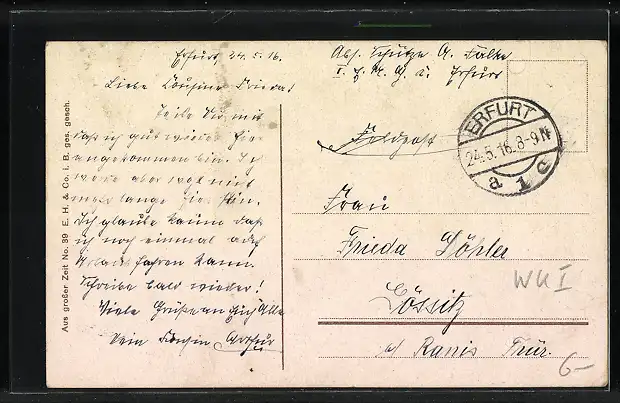 Erfurt 24.5.16.
Liebe Cousine Frieda!
Teile Dir mit
daß ich gut wieder hier
angekommen bin. Ich
werde aber wohl nicht
mehr lange hier sein.
Ich glaube kaum daß
ich noch einmal auf
Urlaub fahren kann.
Schreibe bald wieder!
Viele Grüße an Euch Alle
Dein Cousin Arthur
Aus großer Zeit No. 39 E. H. & Co. i. B. ges. gesch.
Abs. Schütze A. Falke
Erfurt
Feldpost
ERFURT
24.5.16.8-9N
a 1 c
Frau
Frieda Döhler
Lössitz
b/ Ranis Thür.
WK I
6-